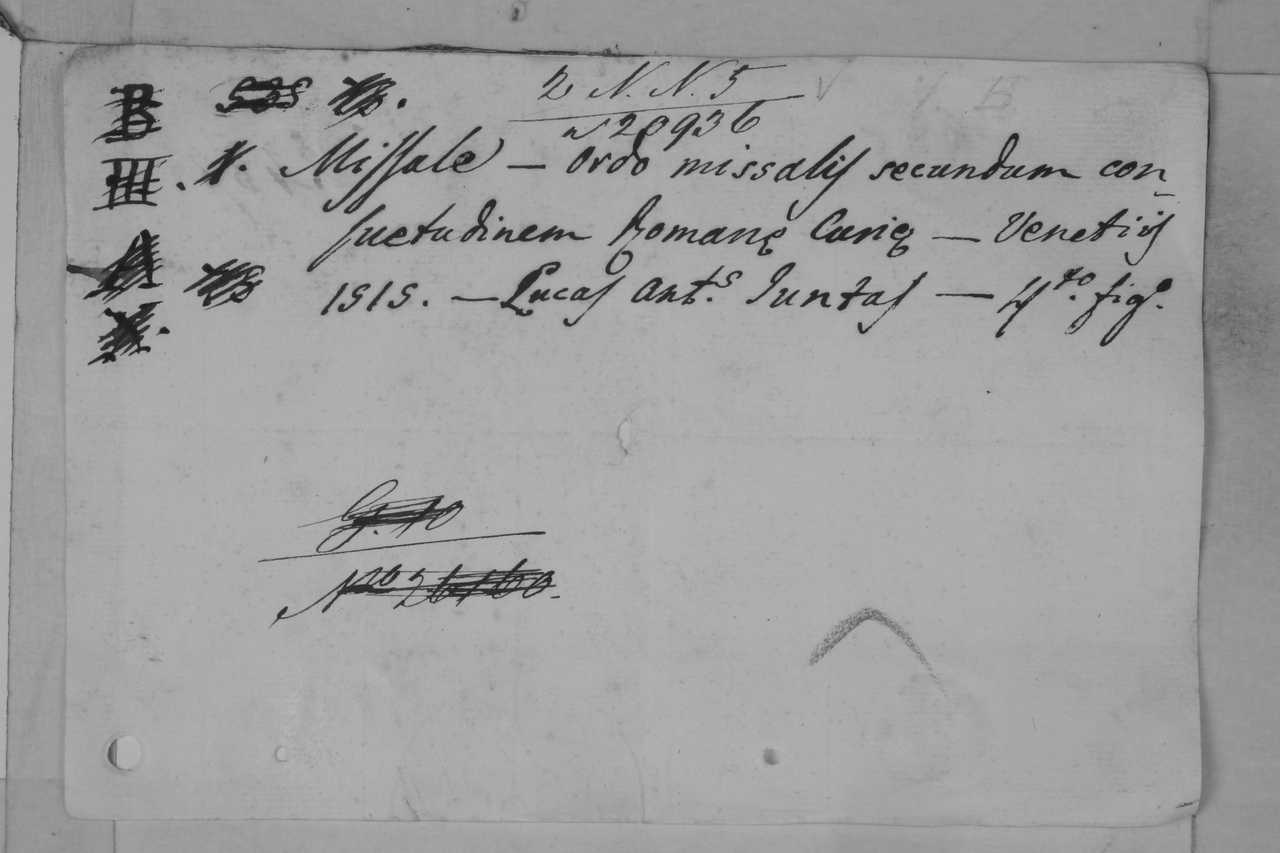 2 N. N. 5
20936
Missale — Ordo missalis secundum con-
suetudinem Romanę Curię — Venetiis
1515. — Lucas Ant.s Juntas — 4.to fig.o
G. 10
No 26160.